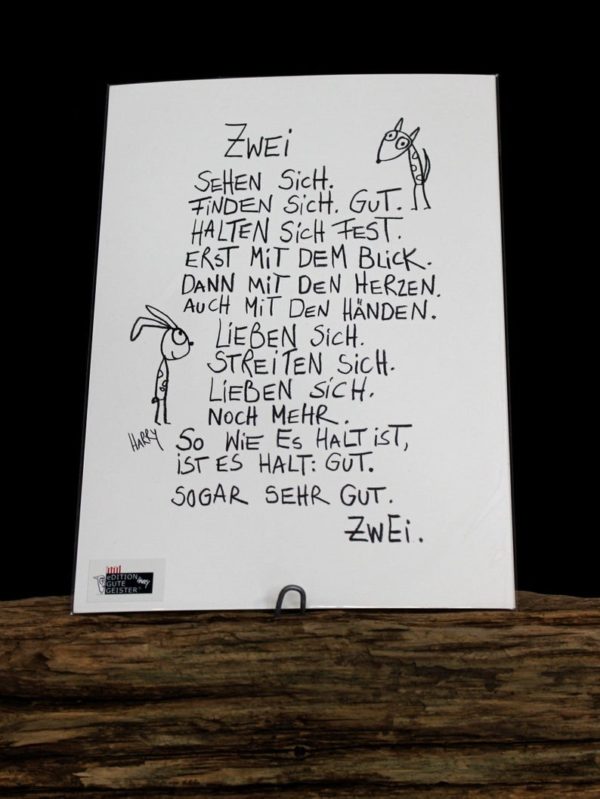 ZWEi
SEHEN SiCH.
FiNDEN SiCH. GUT.
HALTEN SiCH FEST.
ERST MiT DEM BLiCK.
DANN MiT DEN HERZEN.
AUCH MiT DEN HÄNDEN.
LiEBEN SiCH.
STREiTEN SiCH.
LiEBEN SiCH.
NOCH MEHR.
HARRY
SO WiE ES HALT iST,
iST ES HALT: GUT.
SOGAR SEHR GUT.
ZWEi.
eDITION
GUTE
GEISTER